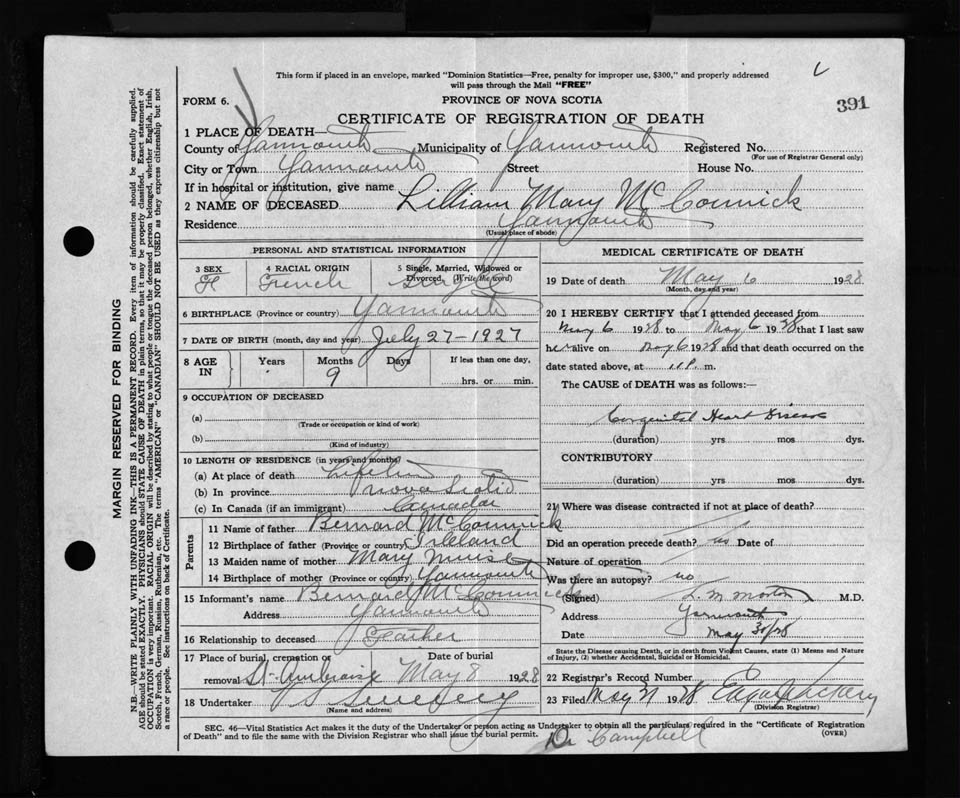 This form if placed in an envelope, marked "Dominion Statistics—Free, penalty for improper use, $300," and properly addressed
will pass through the Mail "FREE"
391
FORM 6.
PROVINCE OF NOVA SCOTIA
CERTIFICATE OF REGISTRATION OF DEATH
1 PLACE OF DEATH—
County of Yarmouth Municipality of Yarmouth Registered No.
(For use of Registrar General only)
City or Town Yarmouth Street House No.
If in hospital or institution, give name
2 NAME OF DECEASED Lilliam Mary McCormick
Residence Yarmouth
(Usual place of abode)
PERSONAL AND STATISTICAL INFORMATION
3 SEX 4 RACIAL ORIGIN 5 Single, Married, Widowed or Divorced (Write the word)
F French Single
6 BIRTHPLACE (Province or country) Yarmouth
7 DATE OF BIRTH (month, day and year) July 27-1927
8 AGE IN Years Months Days If less than one day,
9 hrs. or min.
9 OCCUPATION OF DECEASED
(a)
(Trade or occupation or kind of work)
(b)
(Kind of industry)
10 LENGTH OF RESIDENCE (in years and months)
(a) At place of death Lifetime
(b) In province Nova Scotia
(c) In Canada (if an immigrant) Canadian
Parents
11 Name of father Bernard McCormick
12 Birthplace of father (Province or country) Ireland
13 Maiden name of mother Mary Muise
14 Birthplace of mother (Province or country) Yarmouth
15 Informant's name Bernard McCormick
Address Yarmouth
16 Relationship to deceased Father
17 Place of burial, cremation or Date of burial
removal St. Ambroise May 8 1928
18 Undertaker V S Sweeny
(Name and address)
MEDICAL CERTIFICATE OF DEATH
19 Date of death May 6 1928
(Month, day and year)
20 I HEREBY CERTIFY that I attended deceased from
May 6 1928 to May 6 1928 that I last saw
her alive on May 6 1928 and that death occurred on the
date stated above, at 11 P. m.
The CAUSE of DEATH was as follows:—
Congenital Heart Disease
(duration) yrs mos dys.
CONTRIBUTORY
(duration) yrs mos dys.
21 Where was disease contracted if not at place of death?
Did an operation precede death? no Date of
Nature of operation
Was there an autopsy? no
(Signed) L. M. Morton M.D.
Address Yarmouth
Date May 30/28
State the Disease causing Death, or in death from Violent Causes, state (1) Means and Nature
of Injury, (2) whether Accidental, Suicidal or Homicidal.
22 Registrar's Record Number
23 Filed May 31 1928
(Division Registrar)
SEC. 46—Vital Statistics Act makes it the duty of the Undertaker or person acting as Undertaker to obtain all the particulars required in the "Certificate of Registration
of Death" and to file the same with the Division Registrar who shall issue the burial permit.
(OVER)
Dr Campbell
MARGIN RESERVED FOR BINDING
N.B.—WRITE PLAINLY WITH UNFADING INK—THIS IS A PERMANENT RECORD. Every item of information should be carefully supplied.
AGE should be stated EXACTLY. PHYSICIANS should STATE CAUSE OF DEATH in plain terms, so that it may be properly classified. Exact statement of
OCCUPATION is very important. RACIAL ORIGIN will be described by stating to what people or tongue the deceased person belonged, whether English, Irish,
Scotch, French, German, Russian, Ruthenian, etc. The terms "AMERICAN" or "CANADIAN" SHOULD NOT BE USED as they express citizenship but not
a race or people. See instructions on back of Certificate.